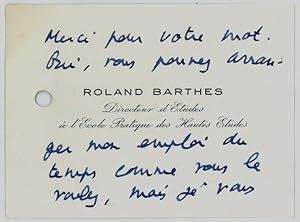 Merci pour votre mot.
Oui, vous pouvez arran-
ROLAND BARTHES
Directeur d'Etudes
à l'Ecole Pratique des Hautes Etudes
ger mon emploi du
temps comme vous le
voulez, mais je vais